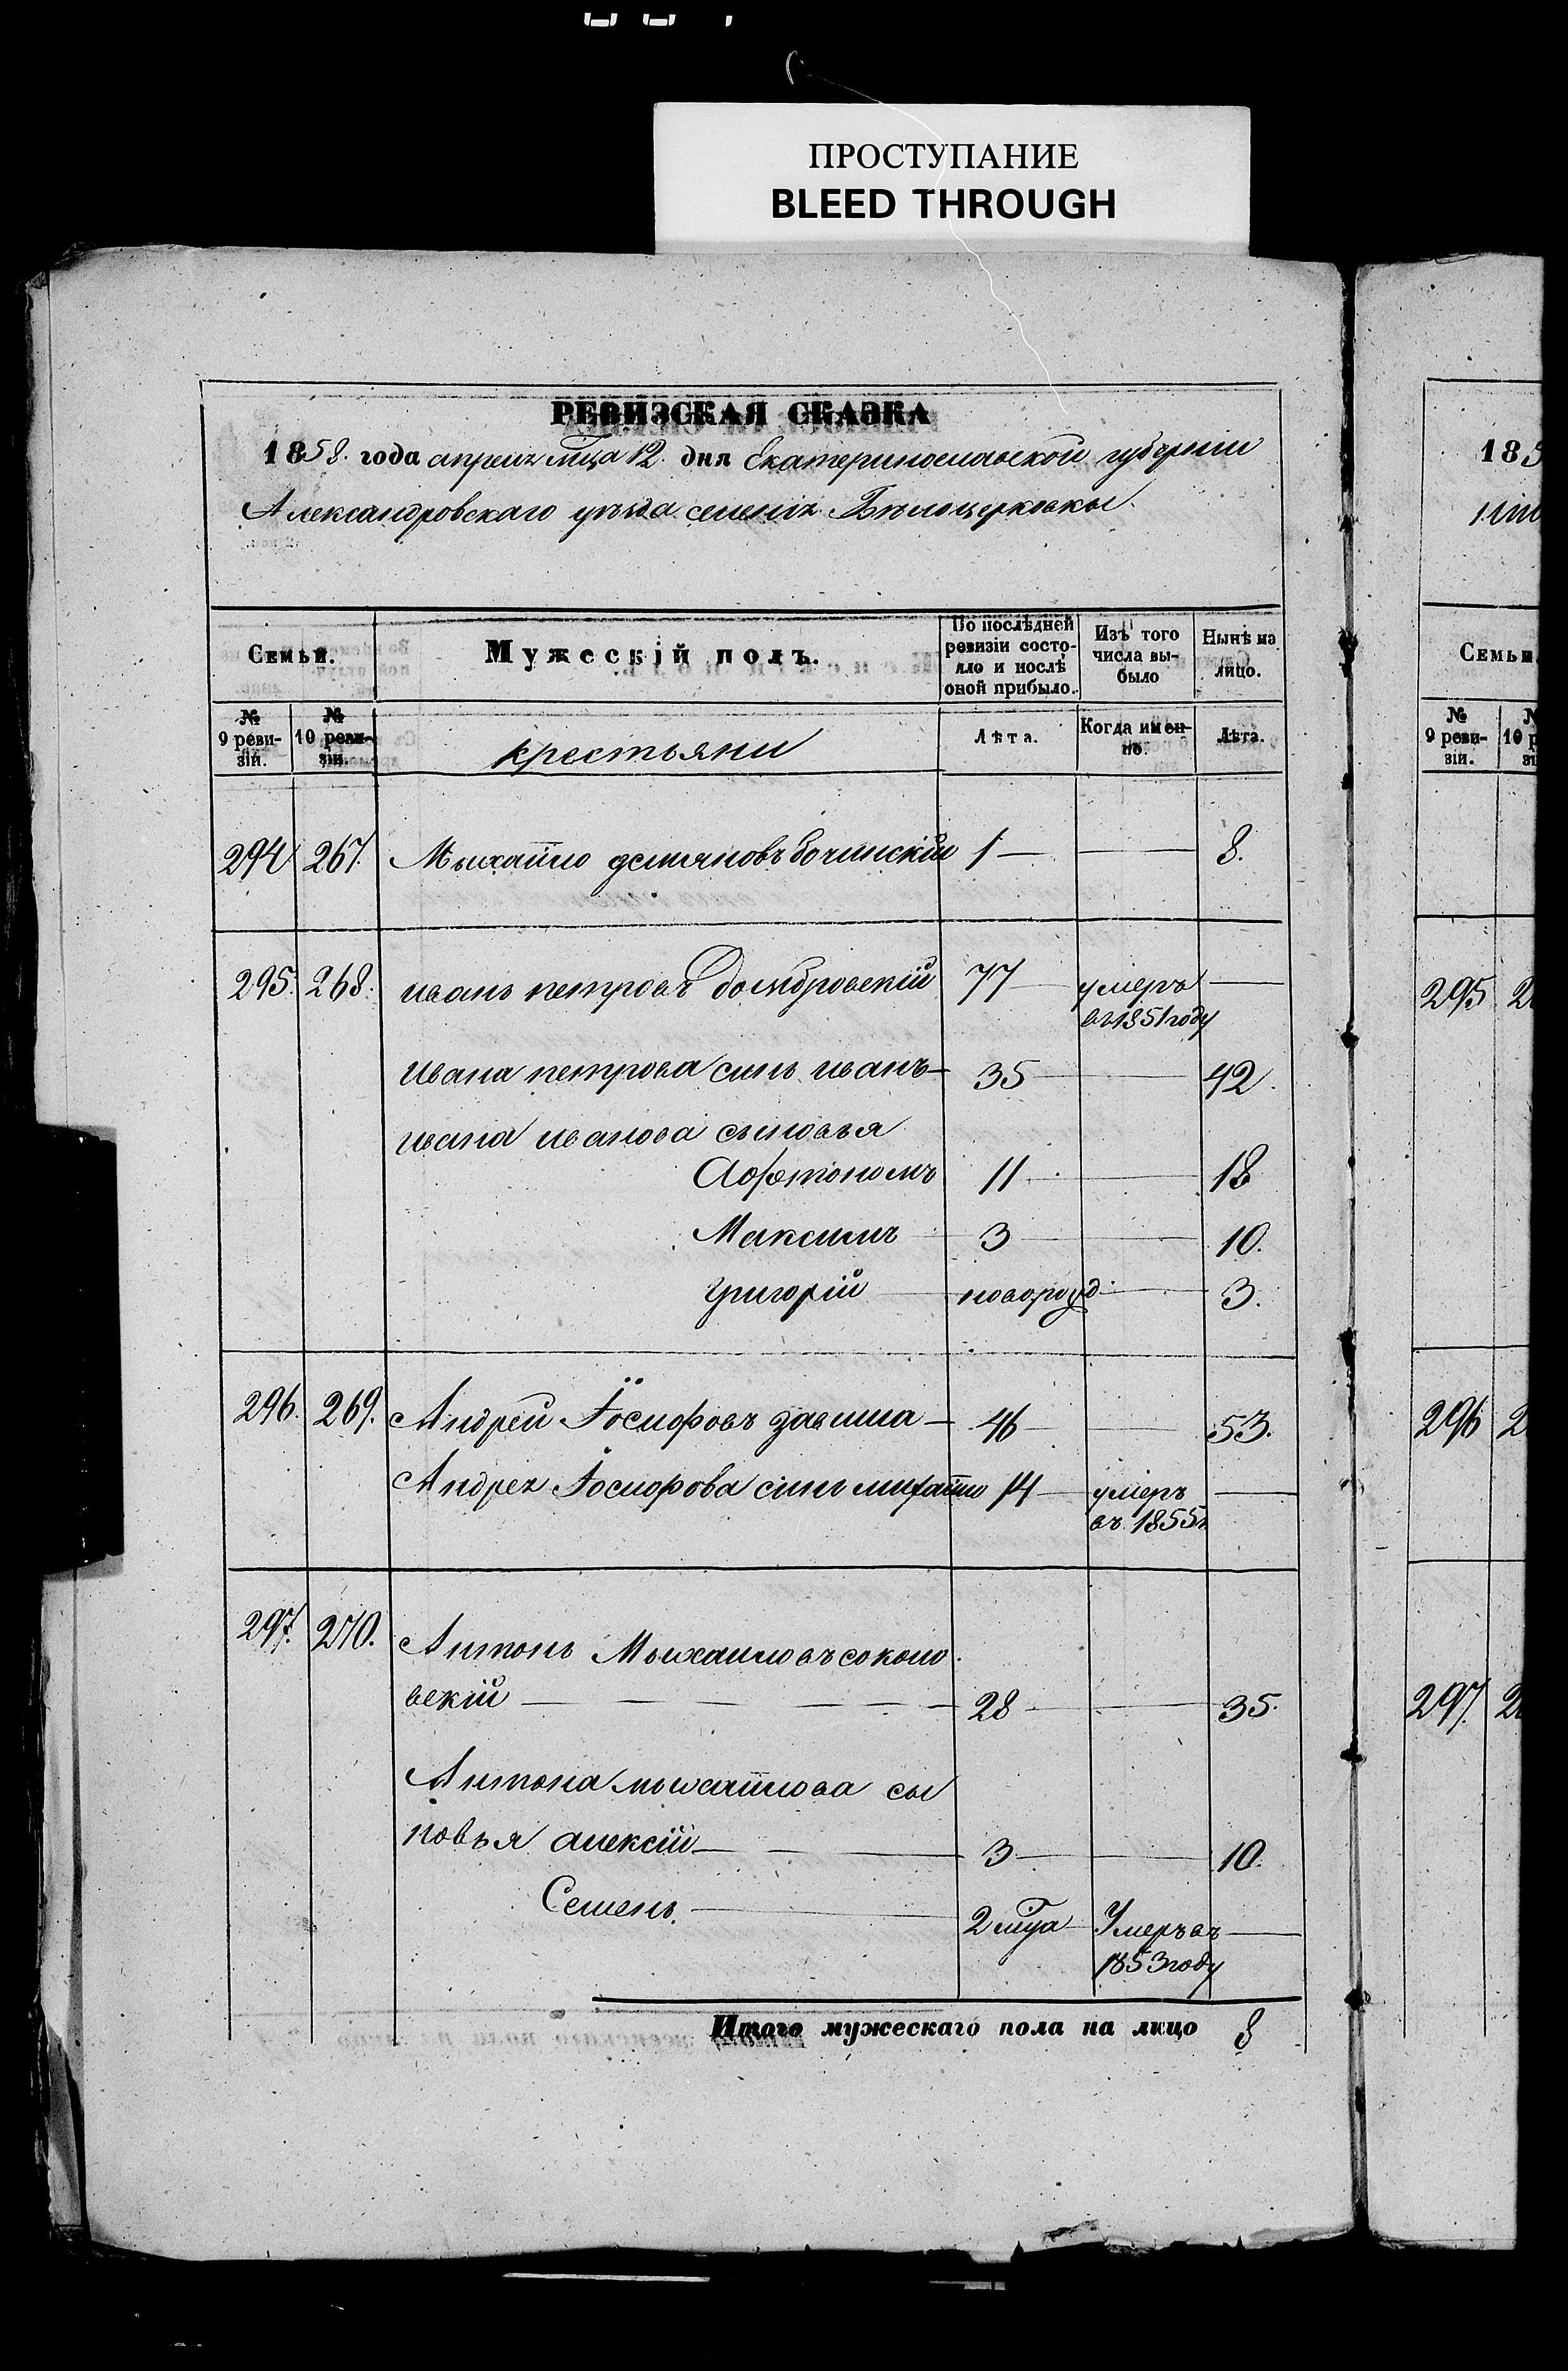 ПРОСТУПАНИЕ
BLEED THROUGH
РЕВИЗСКАЯ СКАЗКА
1858. года апреля мца 12. дня Екатеринославской губерніи
Александровскаго уезда селенія Бѣлоцерковкы
Семьи. Мужескій полъ. По послѣдней ревизіи состояло и послѣ оной прибыло. Изъ того числа выбыло Нынѣ на лицо.
№ 9 ревизіи. № 10 ревизіи. крестьяни Лѣта. Когда именно. Лѣта.
294 267. Мыхайло демяновъ бочинскій 1 — — 8.
295. 268. иванъ петровъ домбровскій 77 умеръ —
въ 1851 году
Ивана петрова синъ иванъ — 35 — 42.
ивана иванова сыновья
Афетономъ 11 — 18
Максимъ 3 — 10.
григорій — новорожд. — 3.
296. 269. Андрей Іосифовъ завша — 46 — — 53.
Андрея Іосифова синъ михайло 14 — умеръ —
въ 1855 г.
297. 270. Антонъ Мыхаиловъ соколо
вскій — 28 — 35.
Антона мыхайлова сы
новья алексій — 3 — 10.
Семенъ. — 2 мца Умеръ въ —
1853 году
Итого мужескаго пола на лицо 8
185
Семьи
№ 9 ревизіи. 10
295
296
297.